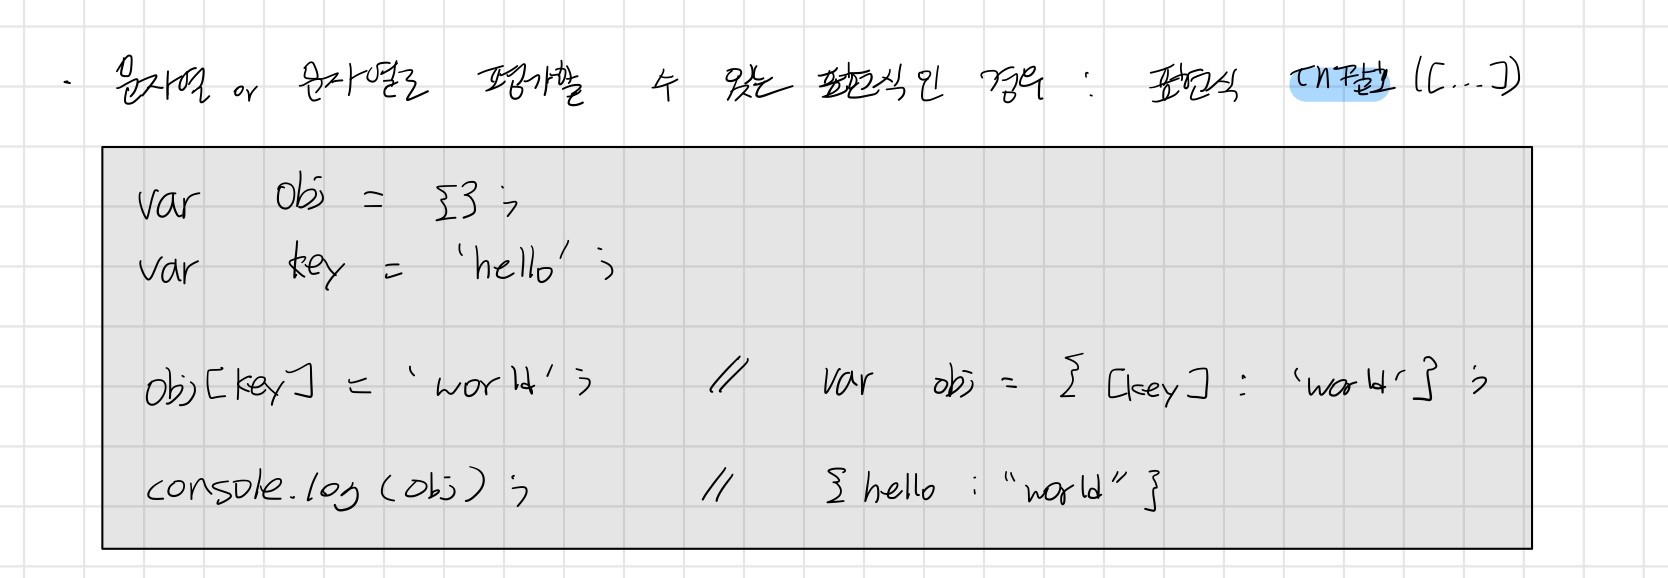 · 문자열 or 문자열로 평가할 수 있는 표현식인 경우 : 표현식 대괄호 ([...])
var obj = {} ;
var key = 'hello' ;
obj[key] = 'world' ; // var obj = { [key] : 'world' } ;
console.log (obj) ; // { hello : "world" }